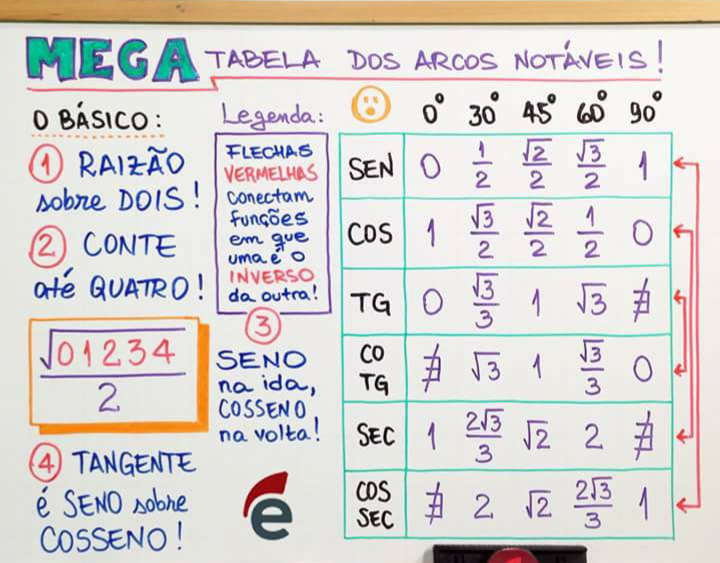 MEGA TABELA DOS ARCOS NOTÁVEIS!
O BÁSICO:
1 RAIZÃO
sobre DOIS!
2 CONTE
até QUATRO!
√01234
2
4 TANGENTE
é SENO sobre
COSSENO!
Legenda:
FLECHAS
VERMELHAS
conectam
funções
em que
uma é o
INVERSO
da outra!
3
SENO
na ida,
COSSENO
na volta!
e
0° 30° 45° 60° 90°
SEN 0 1/2 √2/2 √3/2 1
COS 1 √3/2 √2/2 1/2 0
TG 0 √3/3 1 √3 ∄
CO
TG ∄ √3 1 √3/3 0
SEC 1 2√3/3 √2 2 ∄
COS
SEC ∄ 2 √2 2√3/3 1